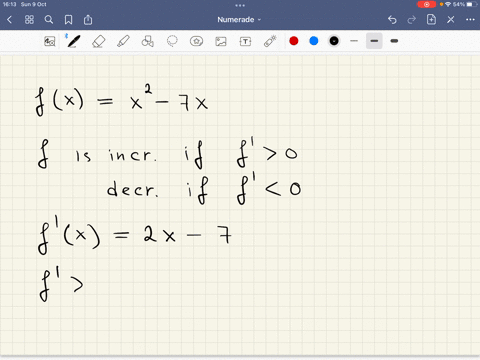 16:13 Sun 9 Oct 54%
Numerade
f(x) = x² - 7x
f is incr. if f' > 0
decr. if f' < 0
f'(x) = 2x - 7
f' >